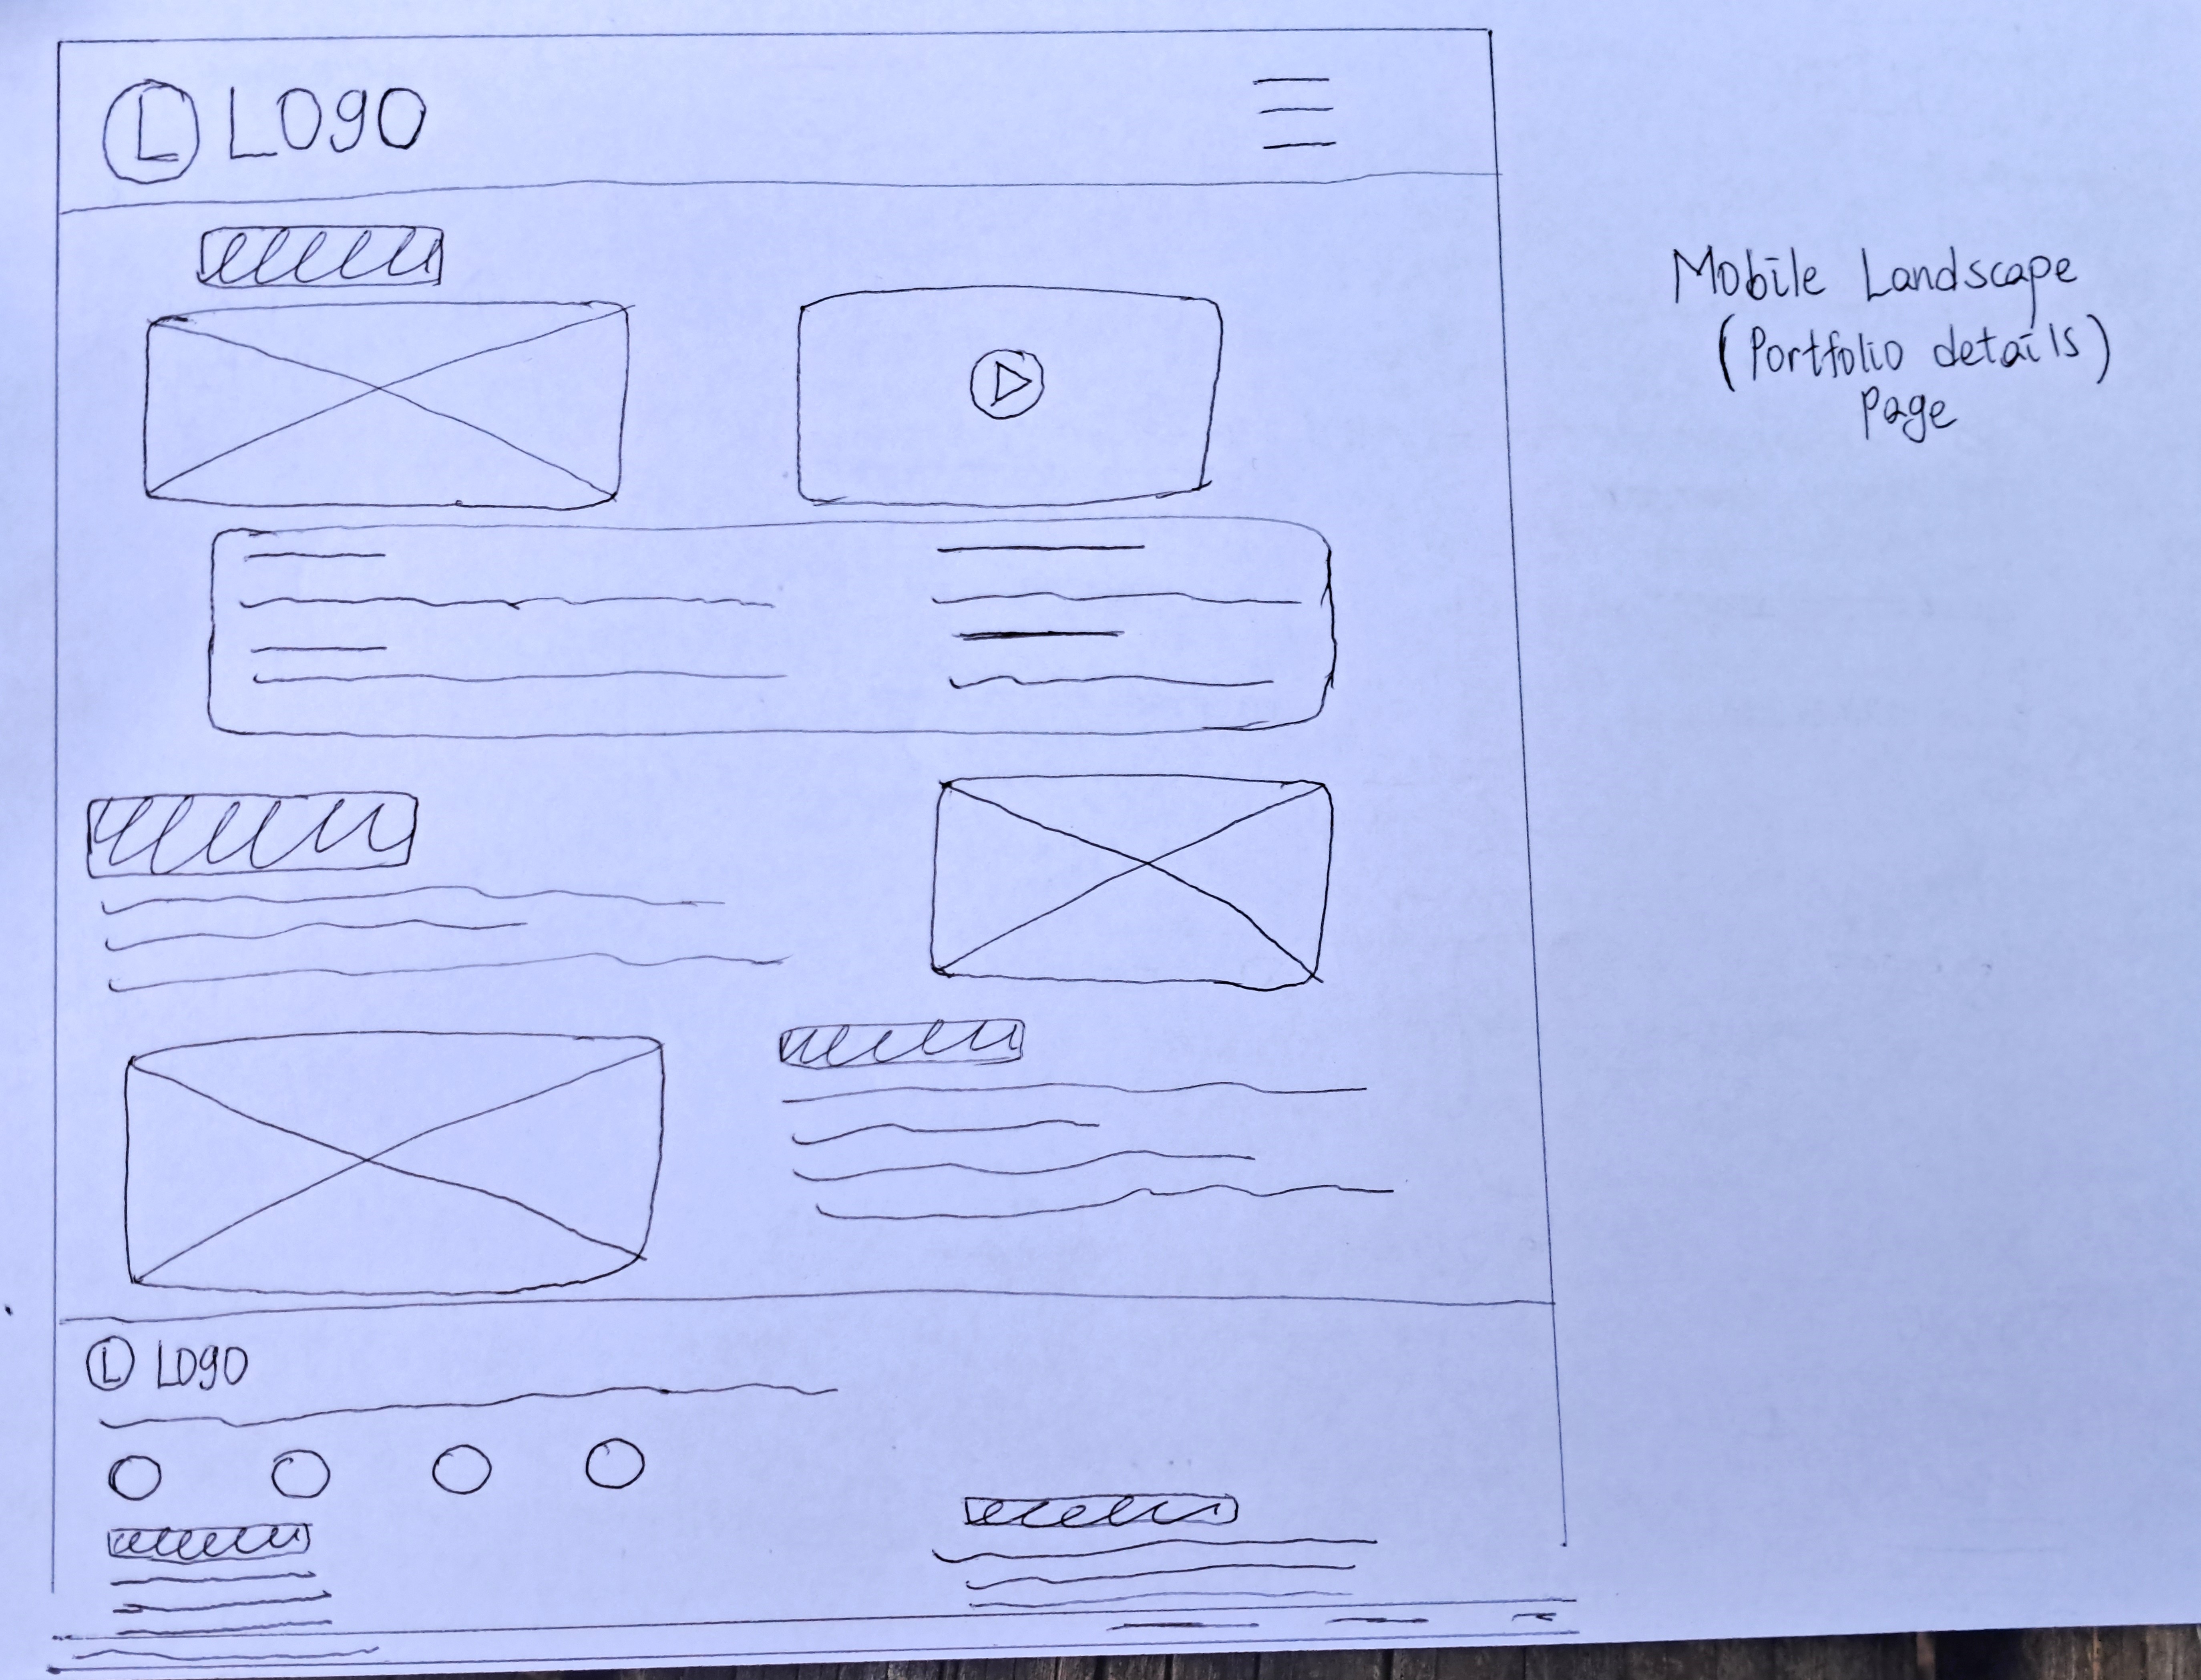 L LOGO
Mobile Landscape
(Portfolio details)
Page
L LOGO